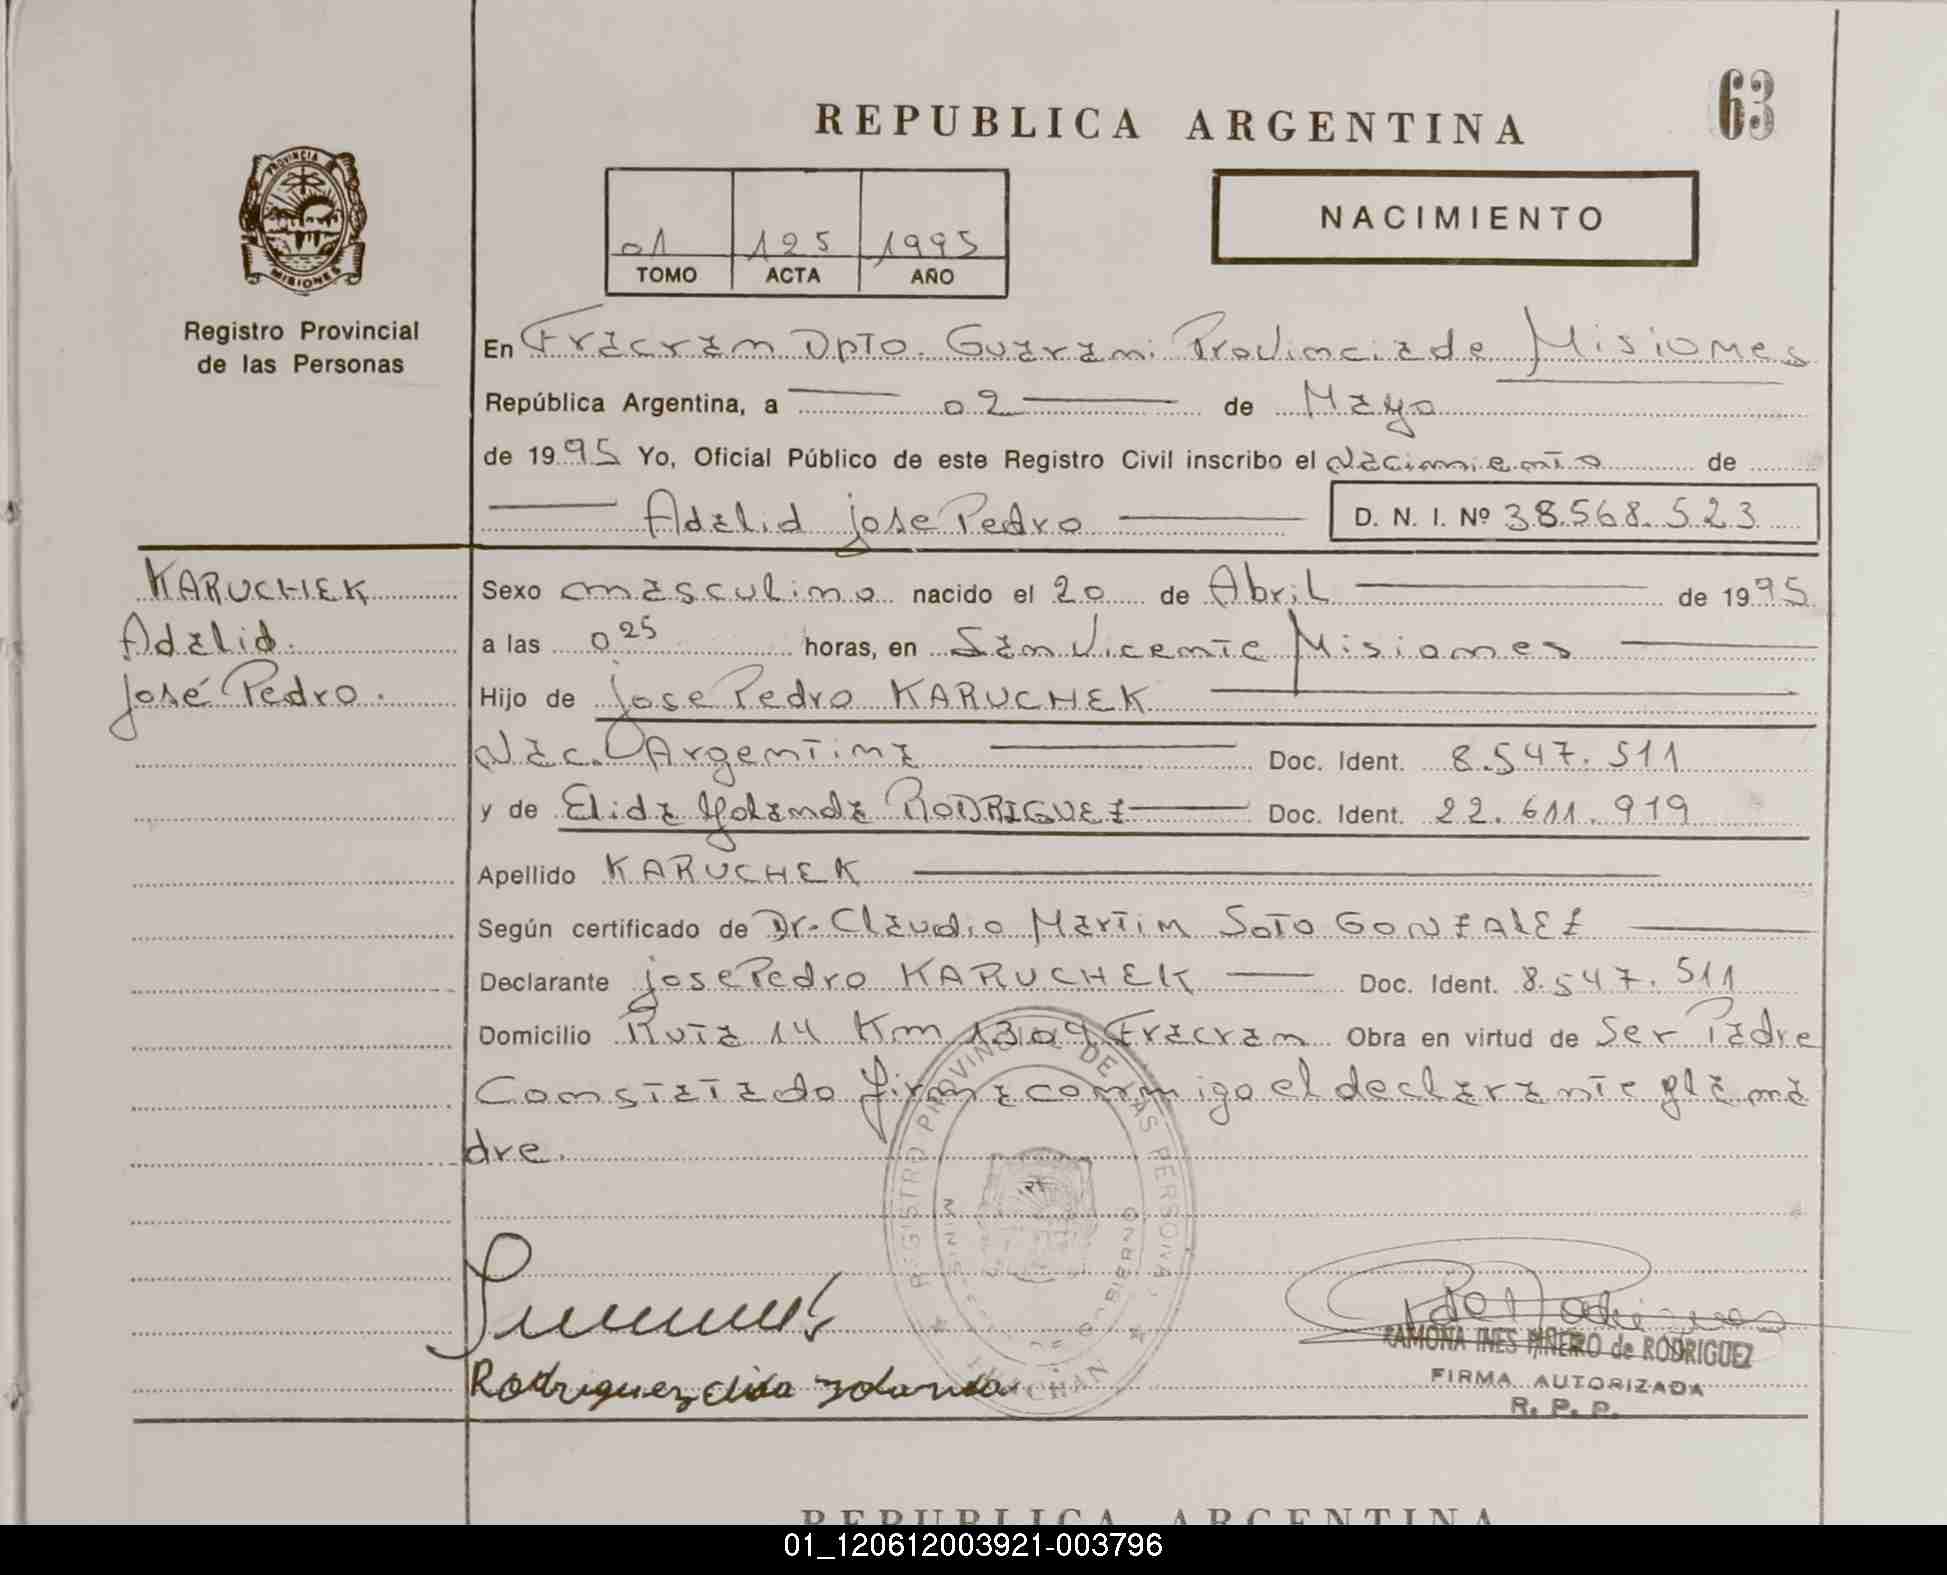 63
REPUBLICA ARGENTINA
PROVINCIA
MISIONES
Registro Provincial
de las Personas
01 125 1995
TOMO ACTA AÑO
NACIMIENTO
En Fracran Dpto. Guarani Provincia de Misiones
República Argentina, a 02 de Mayo
de 1995 Yo, Oficial Público de este Registro Civil inscribo el Nacimiento de
Adalid jose Pedro D. N. I. Nº 38.568.523
KARUCHEK
Adalid
José Pedro.
Sexo masculino nacido el 20 de Abril de 1995
a las 0 25 horas, en San Vicente Misiones
Hijo de jose Pedro KARUCHEK
Nac. Argentina Doc. Ident. 8.547.511
y de Elida Yolanda RODRIGUEZ Doc. Ident. 22.611.919
Apellido KARUCHEK
Según certificado de Dr. Claudio Martin SOTO GONZALEZ
Declarante jose Pedro KARUCHEK Doc. Ident. 8.547.511
Domicilio Ruta 14 Km 1309 Fracran Obra en virtud de Ser Padre
Constatado firma conmigo el declarante y la ma
dre.
REGISTRO PROVINCIAL DE LAS PERSONAS
DE GOBIERNO
Rodriguez elida yolanda
RAMONA INES PIÑEIRO de RODRIGUEZ
FIRMA AUTORIZADA
R. P. P.
REPUBLICA ARGENTINA
01_120612003921-003796